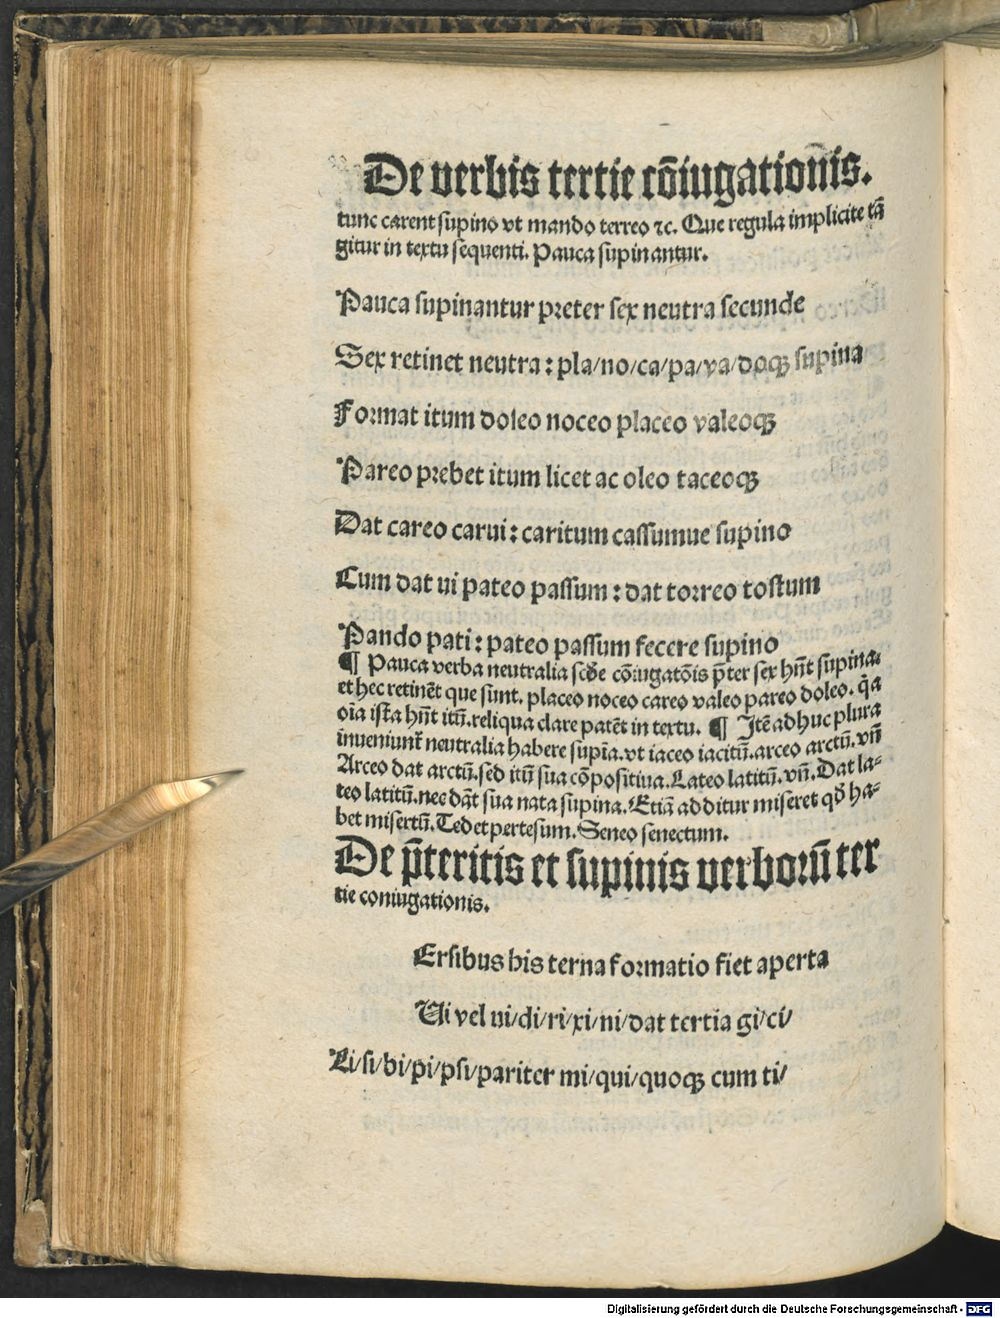 De verbis tertie cōiugationis.
tunc carent supino vt mando terreo ⁊c. Que regula implicite tā
gitur in textu sequenti. Pauca supinantur.
Pauca supinantur preter sex neutra secunde
Sex retinet neutra: pla/no/ca/pa/va/doqꝫ supina
Format itum doleo noceo placeo valeoqꝫ
Pareo prebet itum licet ac oleo taceoqꝫ
Dat careo carui: caritum cassumue supino
Cum dat ui pateo passum: dat torreo tostum
Pando pati: pateo passum fecere supino
¶ Pauca verba neutralia scd̄e cōiugatōis p̄ter sex hn̄t supina.
et hec retinēt que sunt. placeo noceo careo valeo pareo doleo. q̄a
oīa ista hn̄t itū. reliqua clare patēt in textu. ¶ Itē adhuc plura
inueniunt᷑ neutralia habere supīa. vt iaceo iacitū. arceo arctū. vn̄
Arceo dat arctū. sed itū sua cōpositiua. Lateo latitū. vn̄. Dat la-
teo latitū. nec dāt sua nata supina. Etiā additur miseret qd̄ ha-
bet misertū. Tedet pertesum. Seneo senectum.
De p̄teritis et supinis verborū ter
tie coniugationis.
Ersibus his terna formatio fiet aperta
Ui vel ui/di/ri/xi/ni/dat tertia gi/ci/
Li/si/bi/pi/psi/pariter mi/qui/quoqꝫ cum ti/
Digitalisierung gefördert durch die Deutsche Forschungsgemeinschaft - DFG